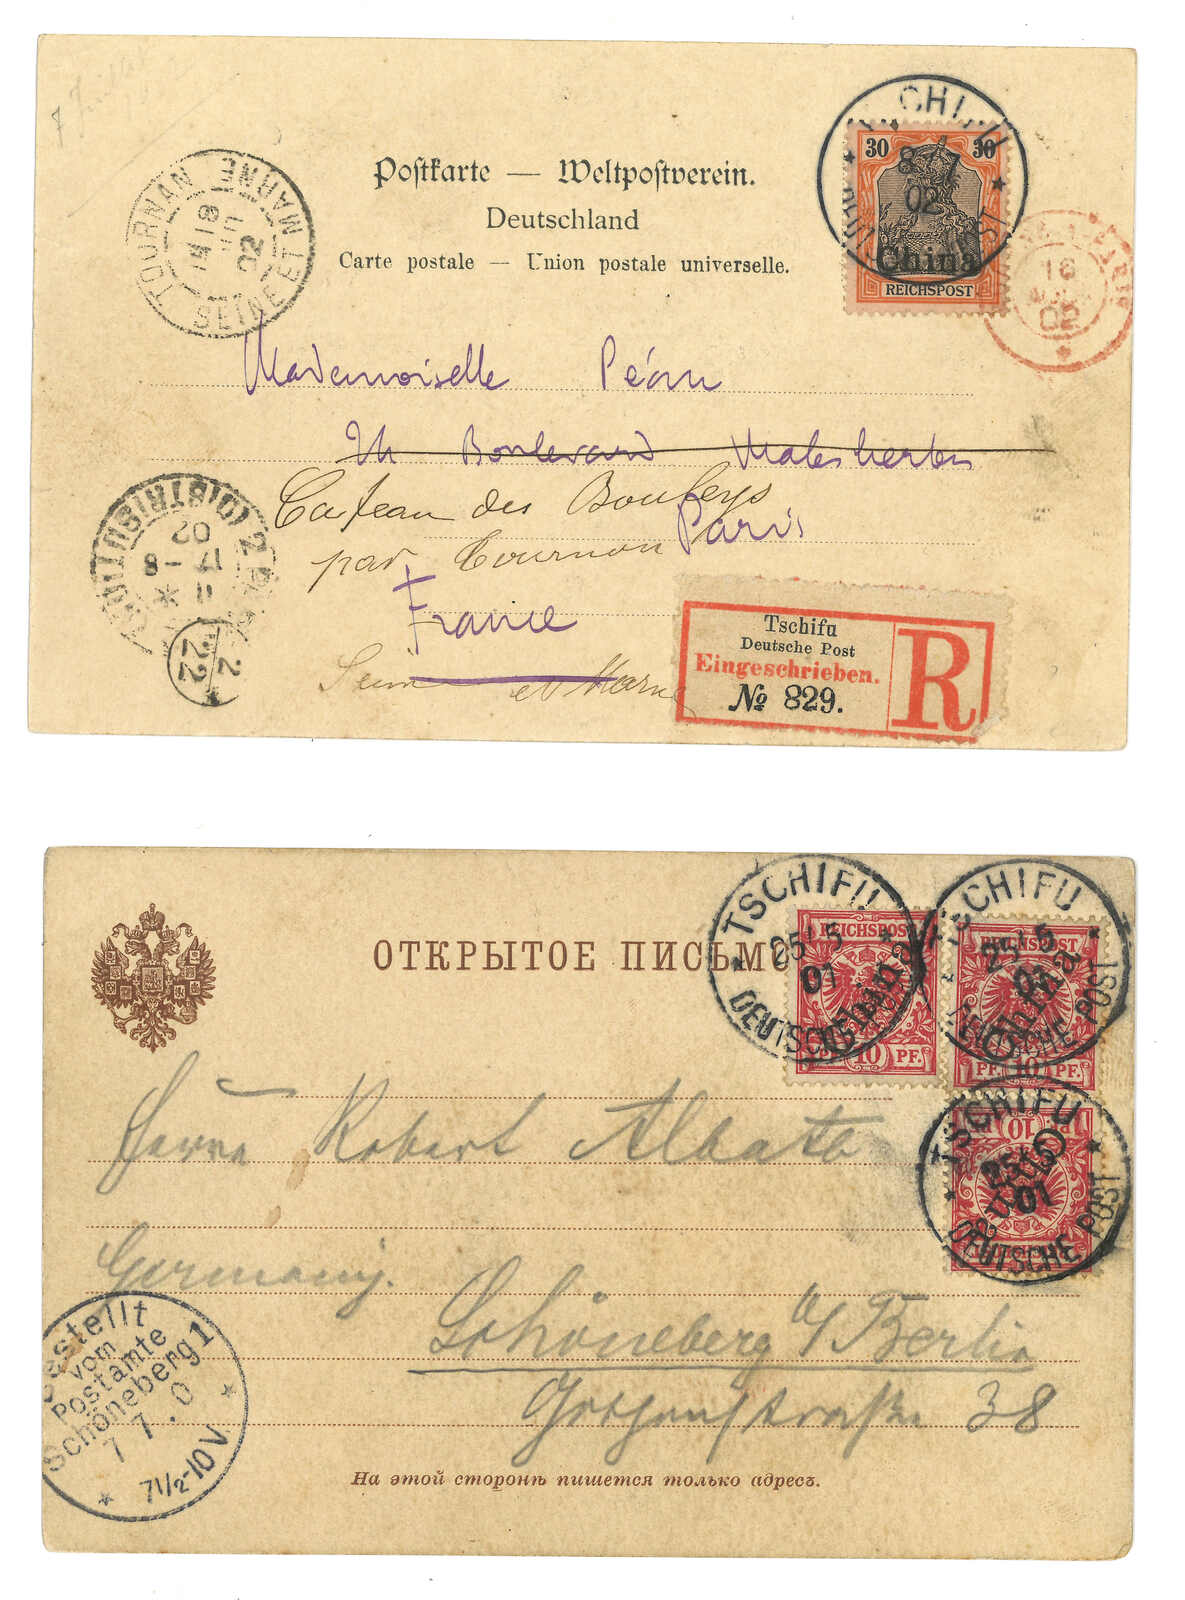 7 Juillet
Postkarte — Weltpostverein.
Deutschland
Carte postale — Union postale universelle.
30 30
China
REICHSPOST
TSCHIFU
8 7
02
POST
TOURNAN
SEINE ET MARNE
02
16
02
Mademoiselle Péan
Boulevard Malesherbes
Cateau des Boulleys
Paris
par Tournan
France
Seine et Marne
DISTRIBUTION
17 - 8
02
2
22
Tschifu
Deutsche Post
Eingeschrieben.
№ 829.
R
ОТКРЫТОЕ ПИСЬМО
TSCHIFU
25 5
01
DEUTSCHE POST
REICHSPOST
China
10 PF.
TSCHIFU
25 5
01
DEUTSCHE POST
REICHSPOST
China
PF. 10 PF.
TSCHIFU
25 5
01
DEUTSCHE POST
10
China
REICHSPOST
Herrn Robert
Germany.
Schöneberg a/Berlin
38
Bestellt
vom
Postamte
Schöneberg 1
7 7. 0
7 1/2-10 V.
На этой сторонѣ пишется только адресъ.